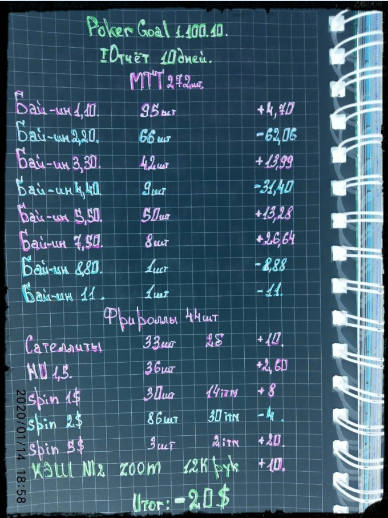 Poker Goal 1.100.10.
I Отчёт 10 дней.
МТТ 272 шт.
Бай-ин 1,10. 95 шт +4,70
Бай-ин 2,20. 66 шт -62,06
Бай-ин 3,30. 42 шт +13,99
Бай-ин 4,40. 9 шт -31,40
Бай-ин 5,50. 50 шт +13,28
Бай-ин 7,50. 8 шт +26,64
Бай-ин 8,80. 1 шт -8,88
Бай-ин 11. 1 шт -11.
Фрироллы 44 шт
Сателлиты 33 шт 25 +10.
36 шт +2,60
Spin 1$ 30 шт 14 itm + 8
Spin 2$ 86 шт 30 itm -4.
Spin 5$ 3 шт 2 itm +20.
КЭШ Nl2 zoom 12К рук +10.
Итог: -20$
2020/01/14 18:58